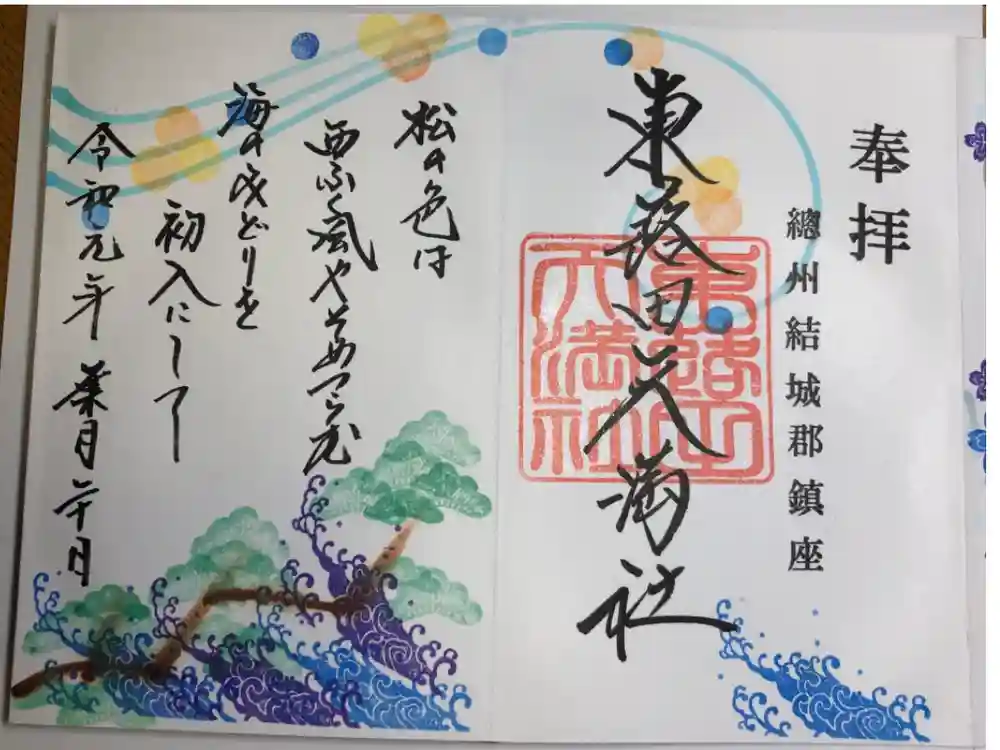 奉拝
總州結城郡鎮座
東蕗田天満社
東蕗田天満社
松の色は
西ふく風やそめつらむ
海のみどりを
初入にして
令和元年葉月二十日